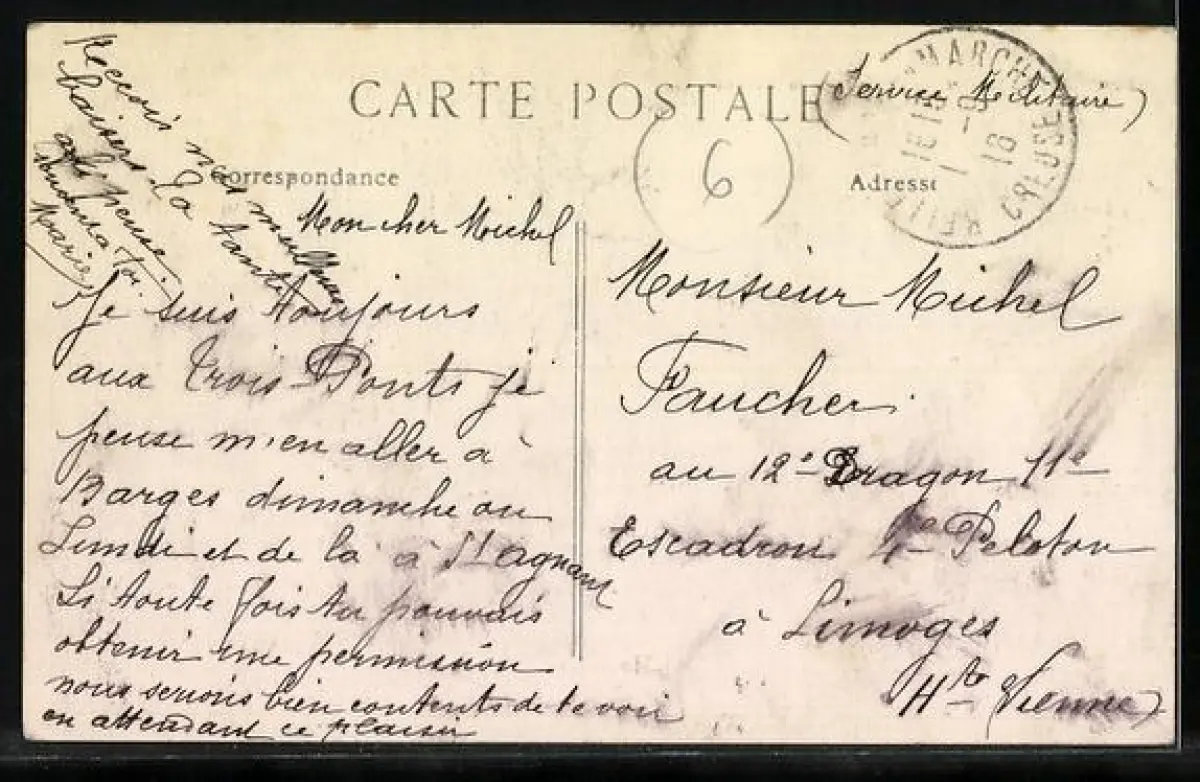 CARTE POSTALE
(Service Militaire)
6
Correspondance
Adresse
MARCHE
CREUSE
18
Mon cher Michel
Je suis toujours
aux Trois-Ponts je
pense m'en aller à
Barges dimanche ou
Lundi et de là à St agnant
Si toute fois tu pouvais
obtenir une permission
nous serions bien contents de te voir
en attendant ce plaisir
Reccois nos meilleurs
baisers. Ta tante
qui pense
souvent a toi.
Marie
Monsieur Michel
Faucher.
au 12e Dragon 11e
Escadron 4e Peloton
à Limoges
Hte (Vienne)